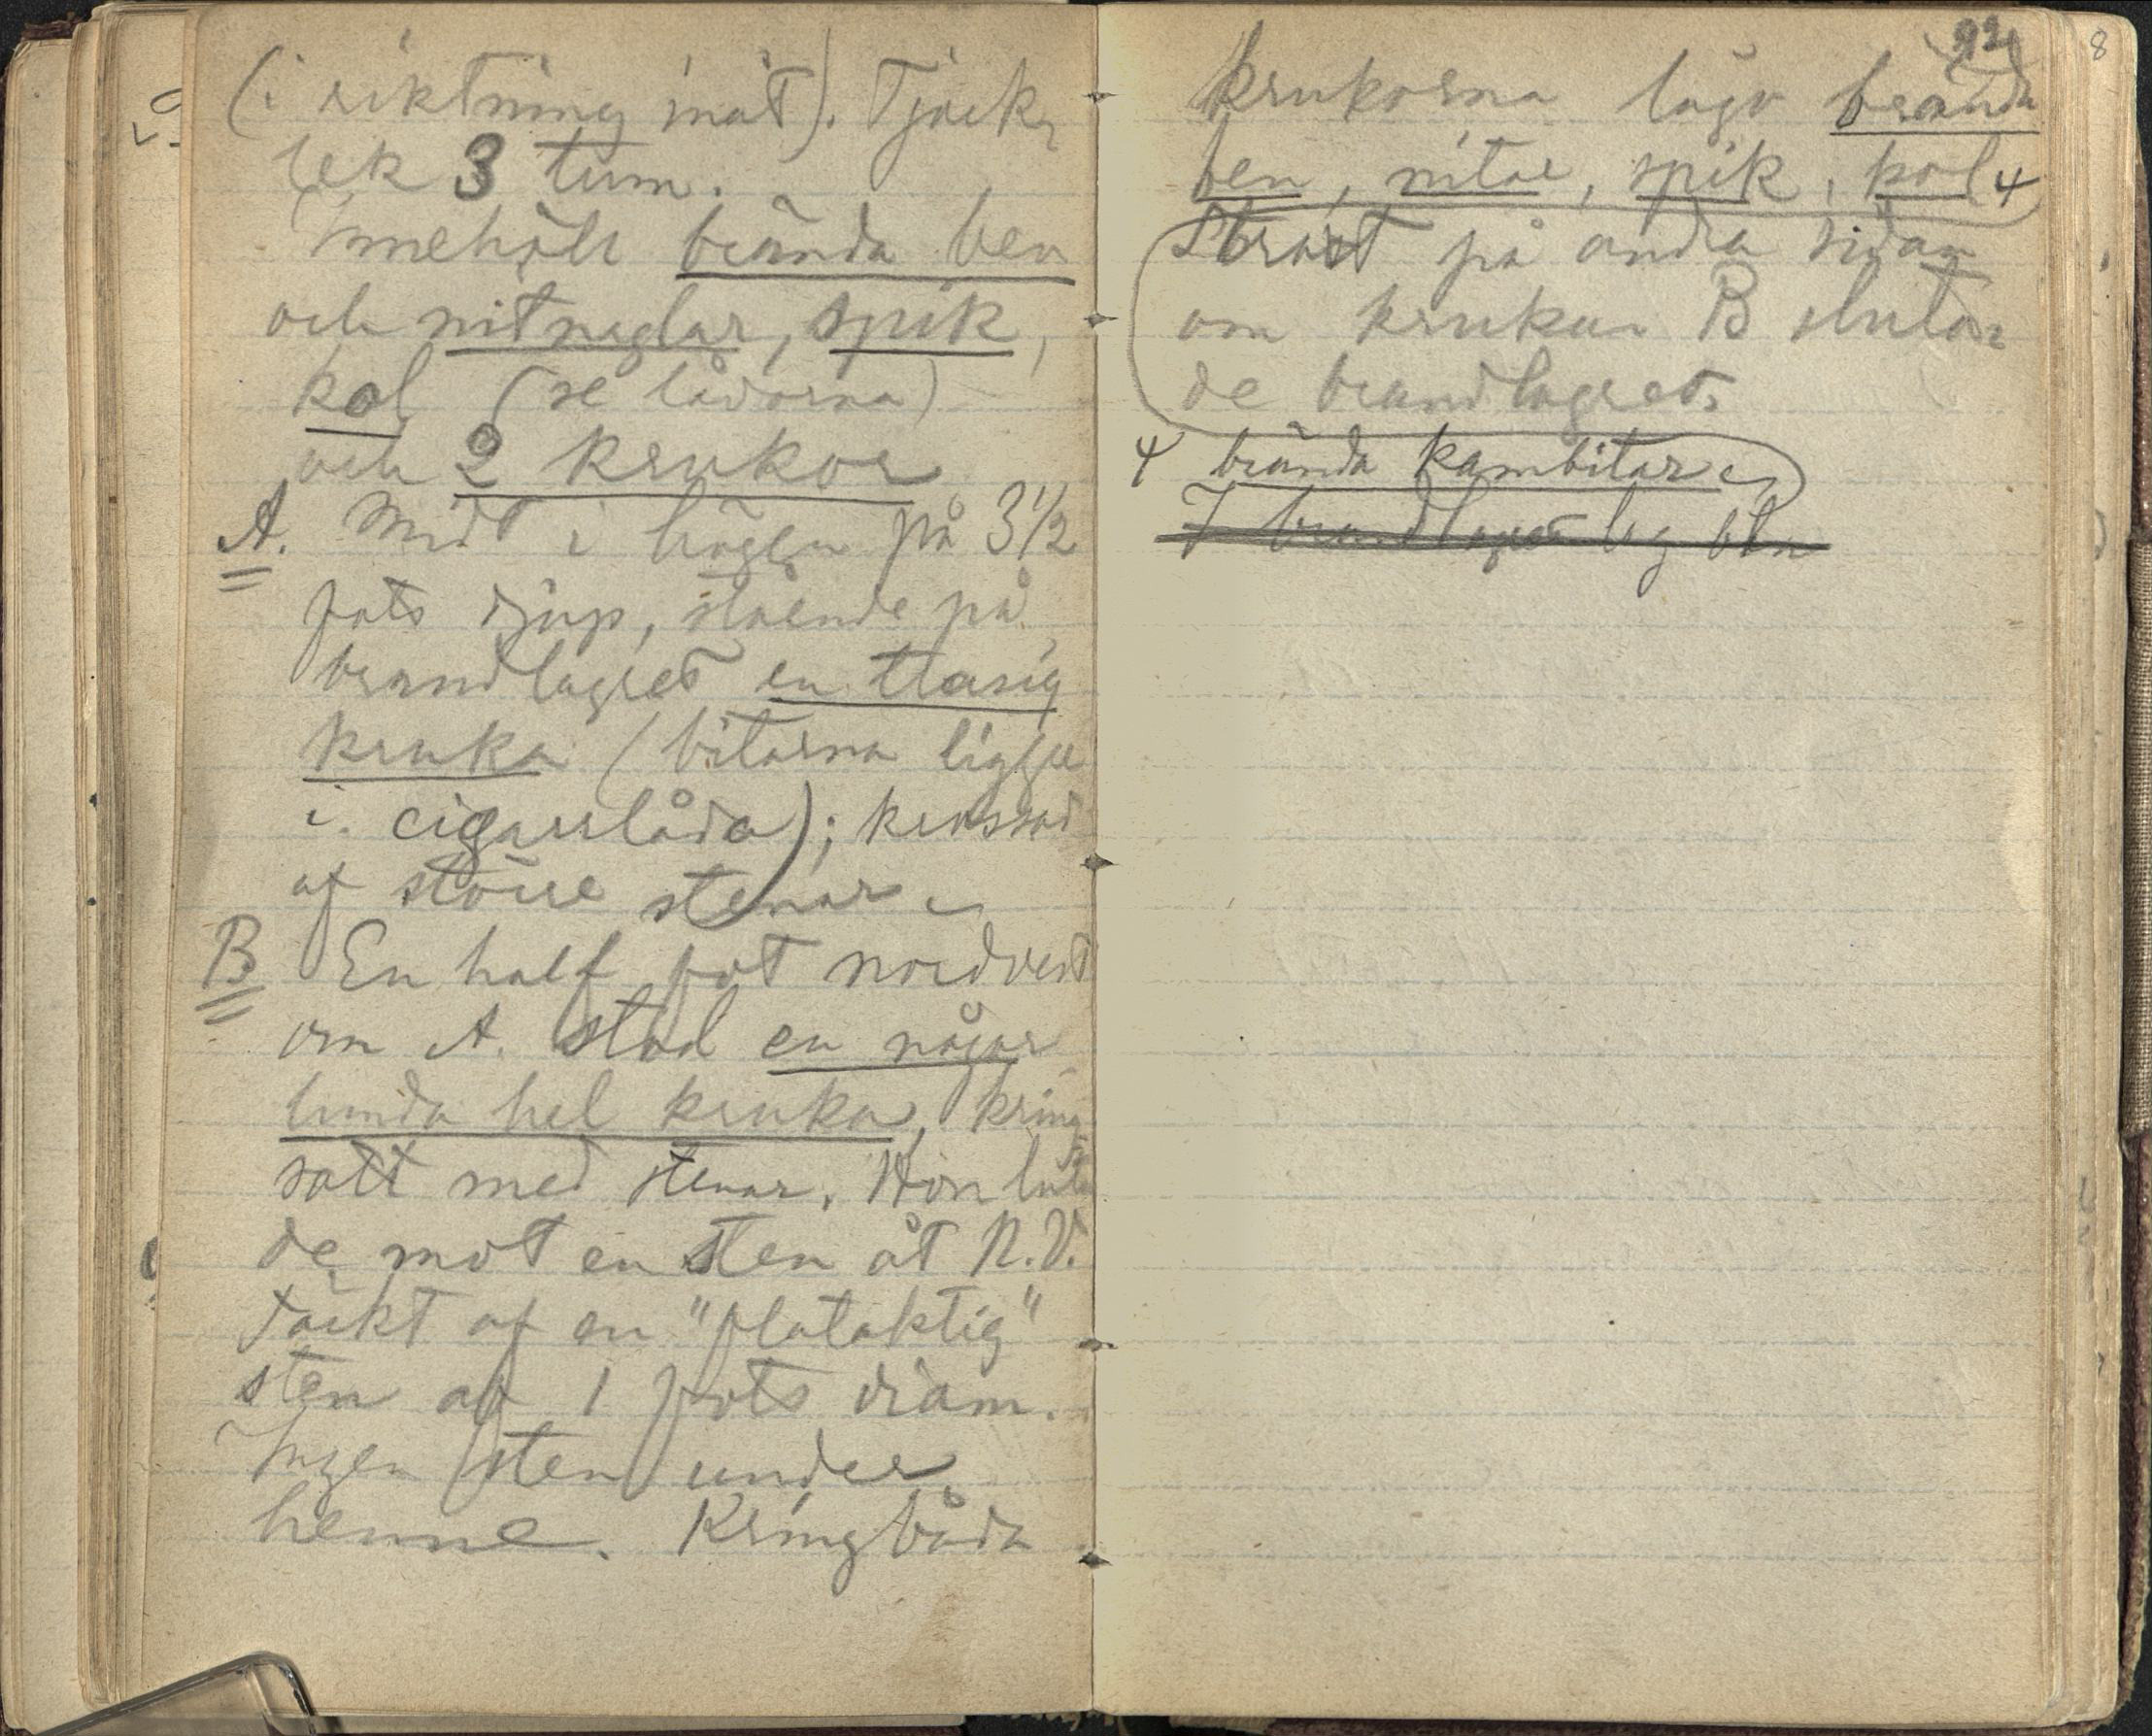 (i riktning inåt). Tjock-
lek 3 tum.
Innehöll brända ben
och nitnaglar, spik,
kol (se lådorna)
och 2 krukor
A. Midt i högen på 3 1/2
fots djup, stående på
brandlagret en trasig
kruka (bitarna ligger
i cigarrlåda); krossad
af större stenar.
B En half fot nordvest
om A. stod en någor
lunda hel kruka, kring
satt med stenar. Hon luta
de mot en sten åt N.V.
Täckt af en "flataktig"
sten af 1 fots diam.
Ingen sten under
henne. Kring båda
92
krukorna lågo brända
ben, nitar, spik, kol
Strax på andra sidan
om krukan B sluta-
de brandlagret.
brända kambitar
I brandlagret låg
8